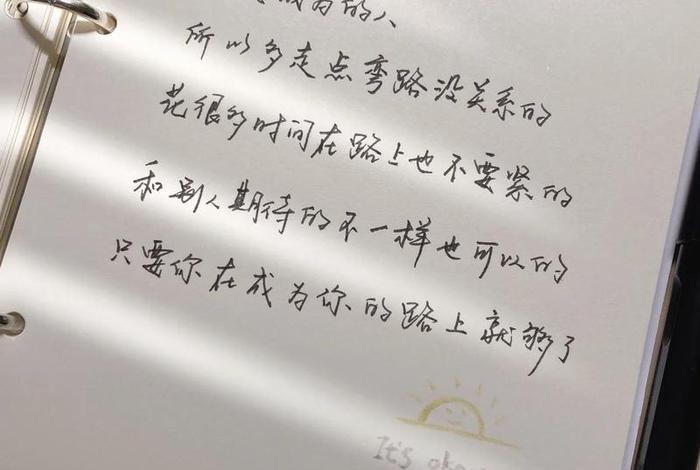 成为的人
所以多走点弯路没关系的
花很多时间在路上也不要紧的
和别人期待的不一样也可以的
只要你在成为你的路上就够了
It's okay